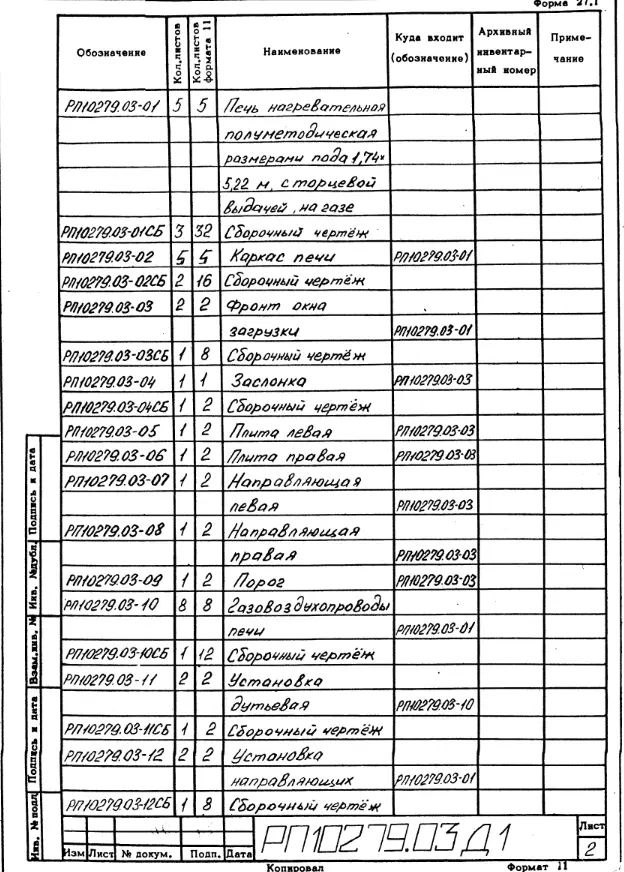 Форма 27.1
Обозначение Кол.листов Кол.листов формата 11 Наименование Куда входит (обозначение) Архивный инвентарный номер Примечание
РП10279.03-01 5 5 Печь нагревательная
полуметодическая
размерами пода 1,74×
5,22 м, с торцевой
выдачей, на газе
РП10279.03-01СБ 3 32 Сборочный чертёж
РП10279.03-02 5 5 Каркас печи РП10279.03-01
РП10279.03-02СБ 2 16 Сборочный чертёж
РП10279.03-03 2 2 Фронт окна
загрузки РП10279.03-01
РП10279.03-03СБ 1 8 Сборочный чертёж
РП10279.03-04 1 1 Заслонка РП10279.03-03
РП10279.03-04СБ 1 2 Сборочный чертёж
РП10279.03-05 1 2 Плита левая РП10279.03-03
РП10279.03-06 1 2 Плита правая РП10279.03-03
РП10279.03-07 1 2 Направляющая
левая РП10279.03-03
РП10279.03-08 1 2 Направляющая
правая РП10279.03-03
РП10279.03-09 1 2 Порог РП10279.03-03
РП10279.03-10 8 8 Газовоздухопроводы
печи РП10279.03-01
РП10279.03-10СБ 1 12 Сборочный чертёж
РП10279.03-11 2 2 Установка
дутьевая РП10279.03-10
РП10279.03-11СБ 1 2 Сборочный чертёж
РП10279.03-12 2 2 Установка
направляющих РП10279.03-01
РП10279.03-12СБ 1 8 Сборочный чертёж
Подпись и дата
Инв. №дубл.
Взам.инв. №
Подпись и дата
Инв. №подл
Изм Лист № докум. Подп. Дата
РП10279.03Д1
Лист
2
Копировал Формат 11